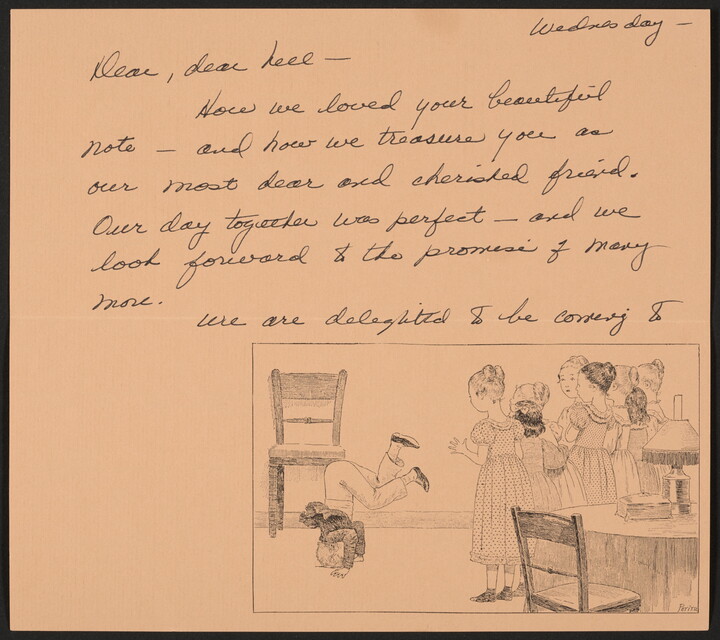 Wednesday —
Dear, dear Leee —
How we loved your beautiful
note — and how we treasure you as
our most dear and cherished friend.
Our day together was perfect — and we
look forward to the promise of many
more.
We are delighted to be coming to